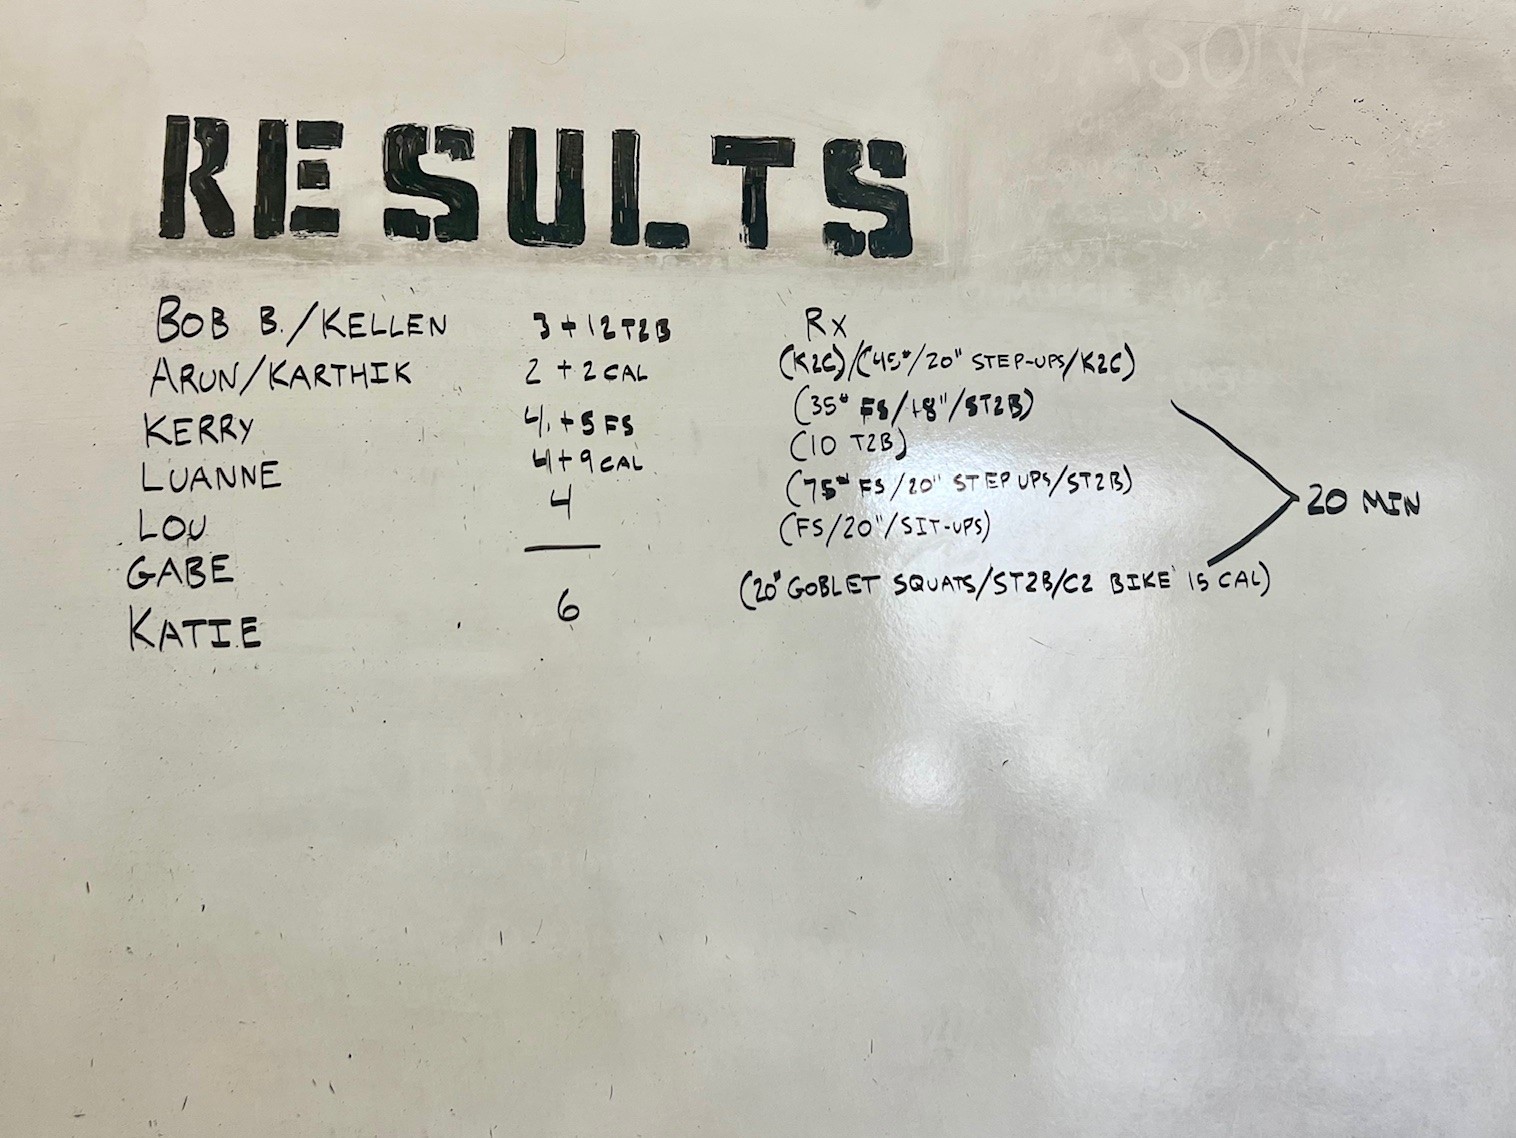 RESULTS
BOB B./KELLEN 3 + 12 T2B Rx
ARUN/KARTHIK 2 + 2 CAL (K2C)/(45#/20" STEP-UPS/K2C)
KERRY 4 + 5 FS (35# FS/18"/ST2B)
LUANNE 4 + 9 CAL (10 T2B)
LOU 4 (75# FS/20" STEP UPS/ST2B)
GABE — (FS/20"/SIT-UPS)
KATIE 6 (20# GOBLET SQUATS/ST2B/C2 BIKE 15 CAL)
20 MIN